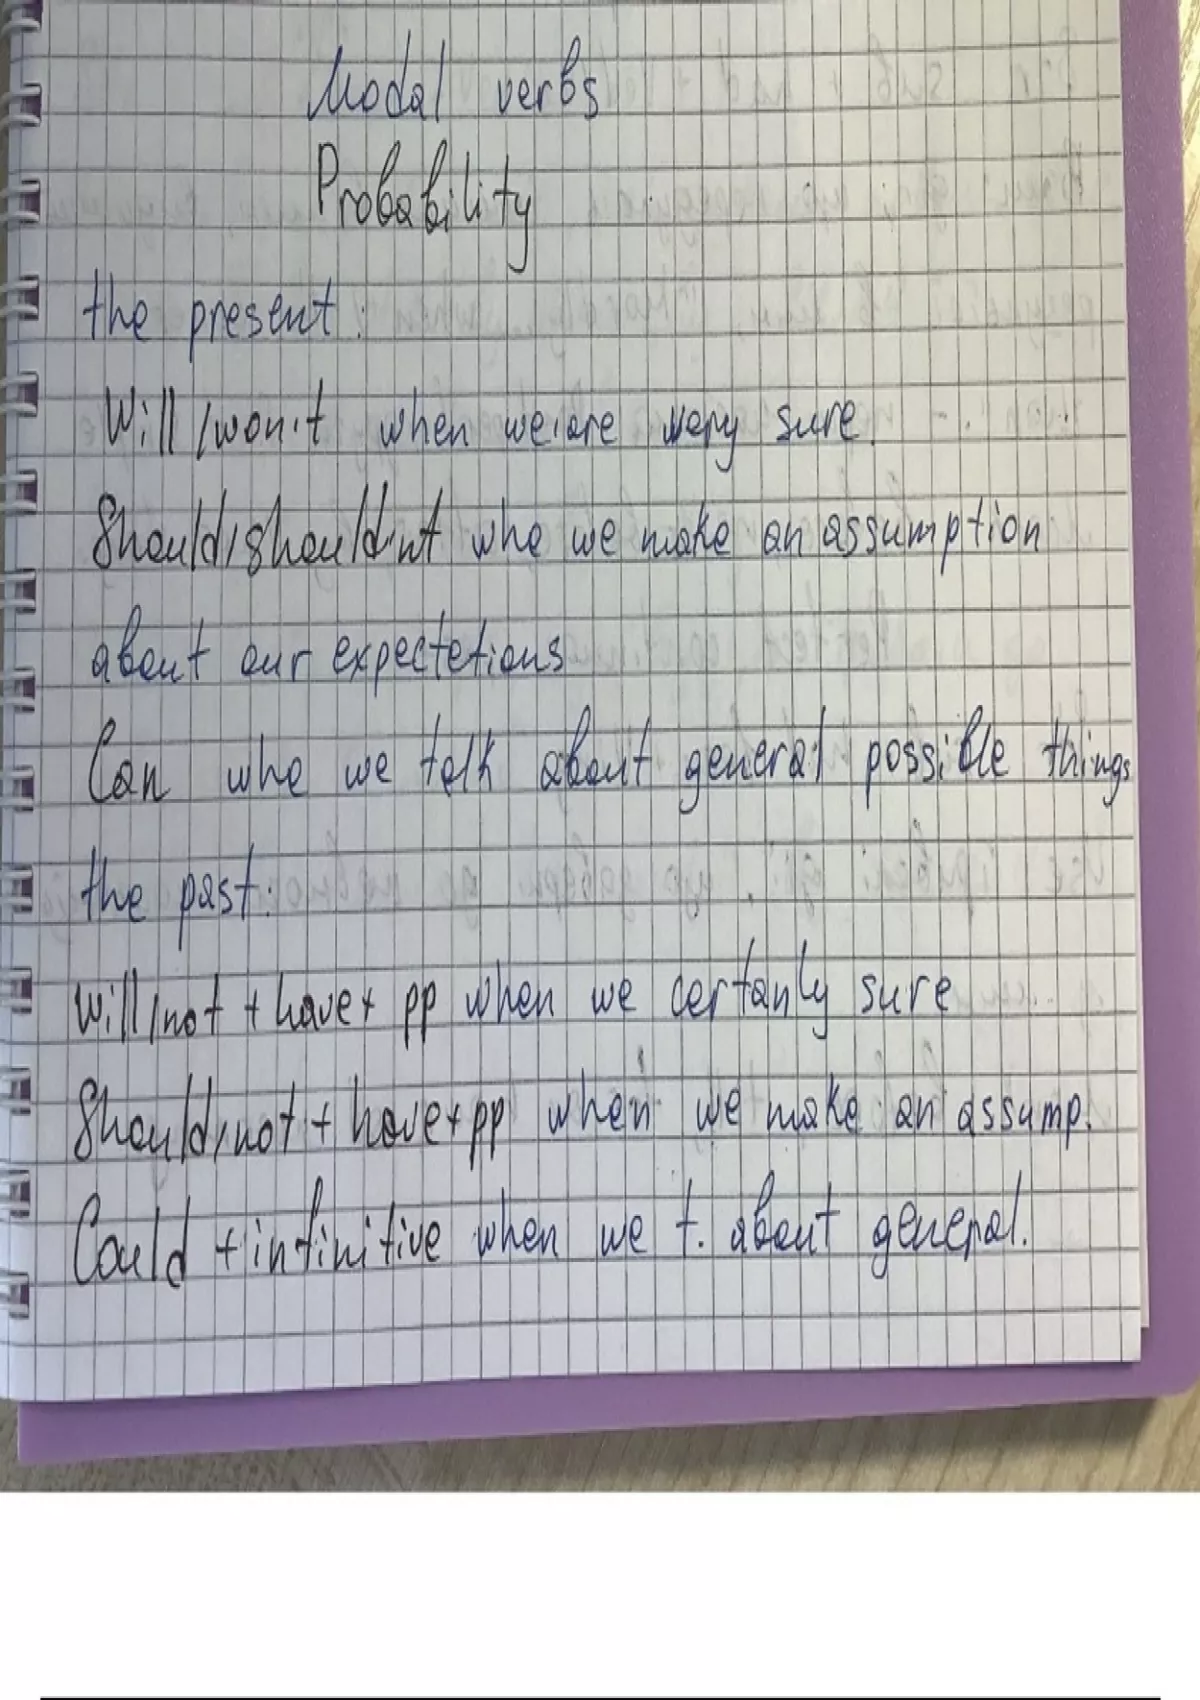 Modal verbs
Probability
the present:
Will/won't when we are very sure.
Should/shouldn't whe we make an assumption
about our expectetions
Can whe we talk about general possible things
the past:
Will/not + have + pp when we certanly sure
Should/not + have + pp when we make an assump.
Could + infinitive when we t. about general.